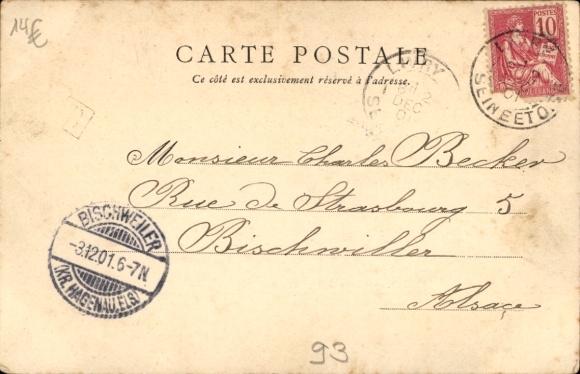 14€
CARTE POSTALE
Ce côté est exclusivement réservé à l'adresse.
POSTES
10
2
DEC
01
SEINE ET O
Monsieur Charles Becker
Rue de Strasbourg 5
Bischwiller
Alsace
BISCHWEILER
-3.12.01.6-7N.
(KR. HAGENAU.ELS)
93